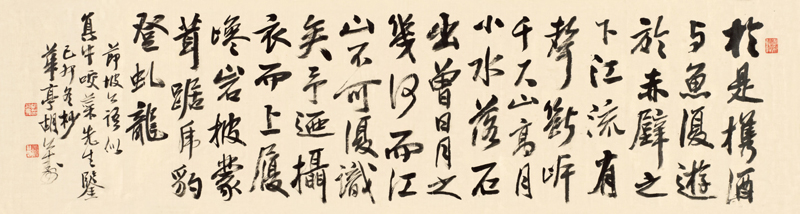 於是携酒
与魚復遊
於赤壁之
下江流有
聲斷岸
千尺山高月
小水落石
出曾日月之
幾何而江
山不可復識
矣予迺攝
衣而上履
巉岩披蒙
茸踞虎豹
登虬龍
節坡公語似
咬菜先生鑒
己卯冬杪
華亭胡公壽